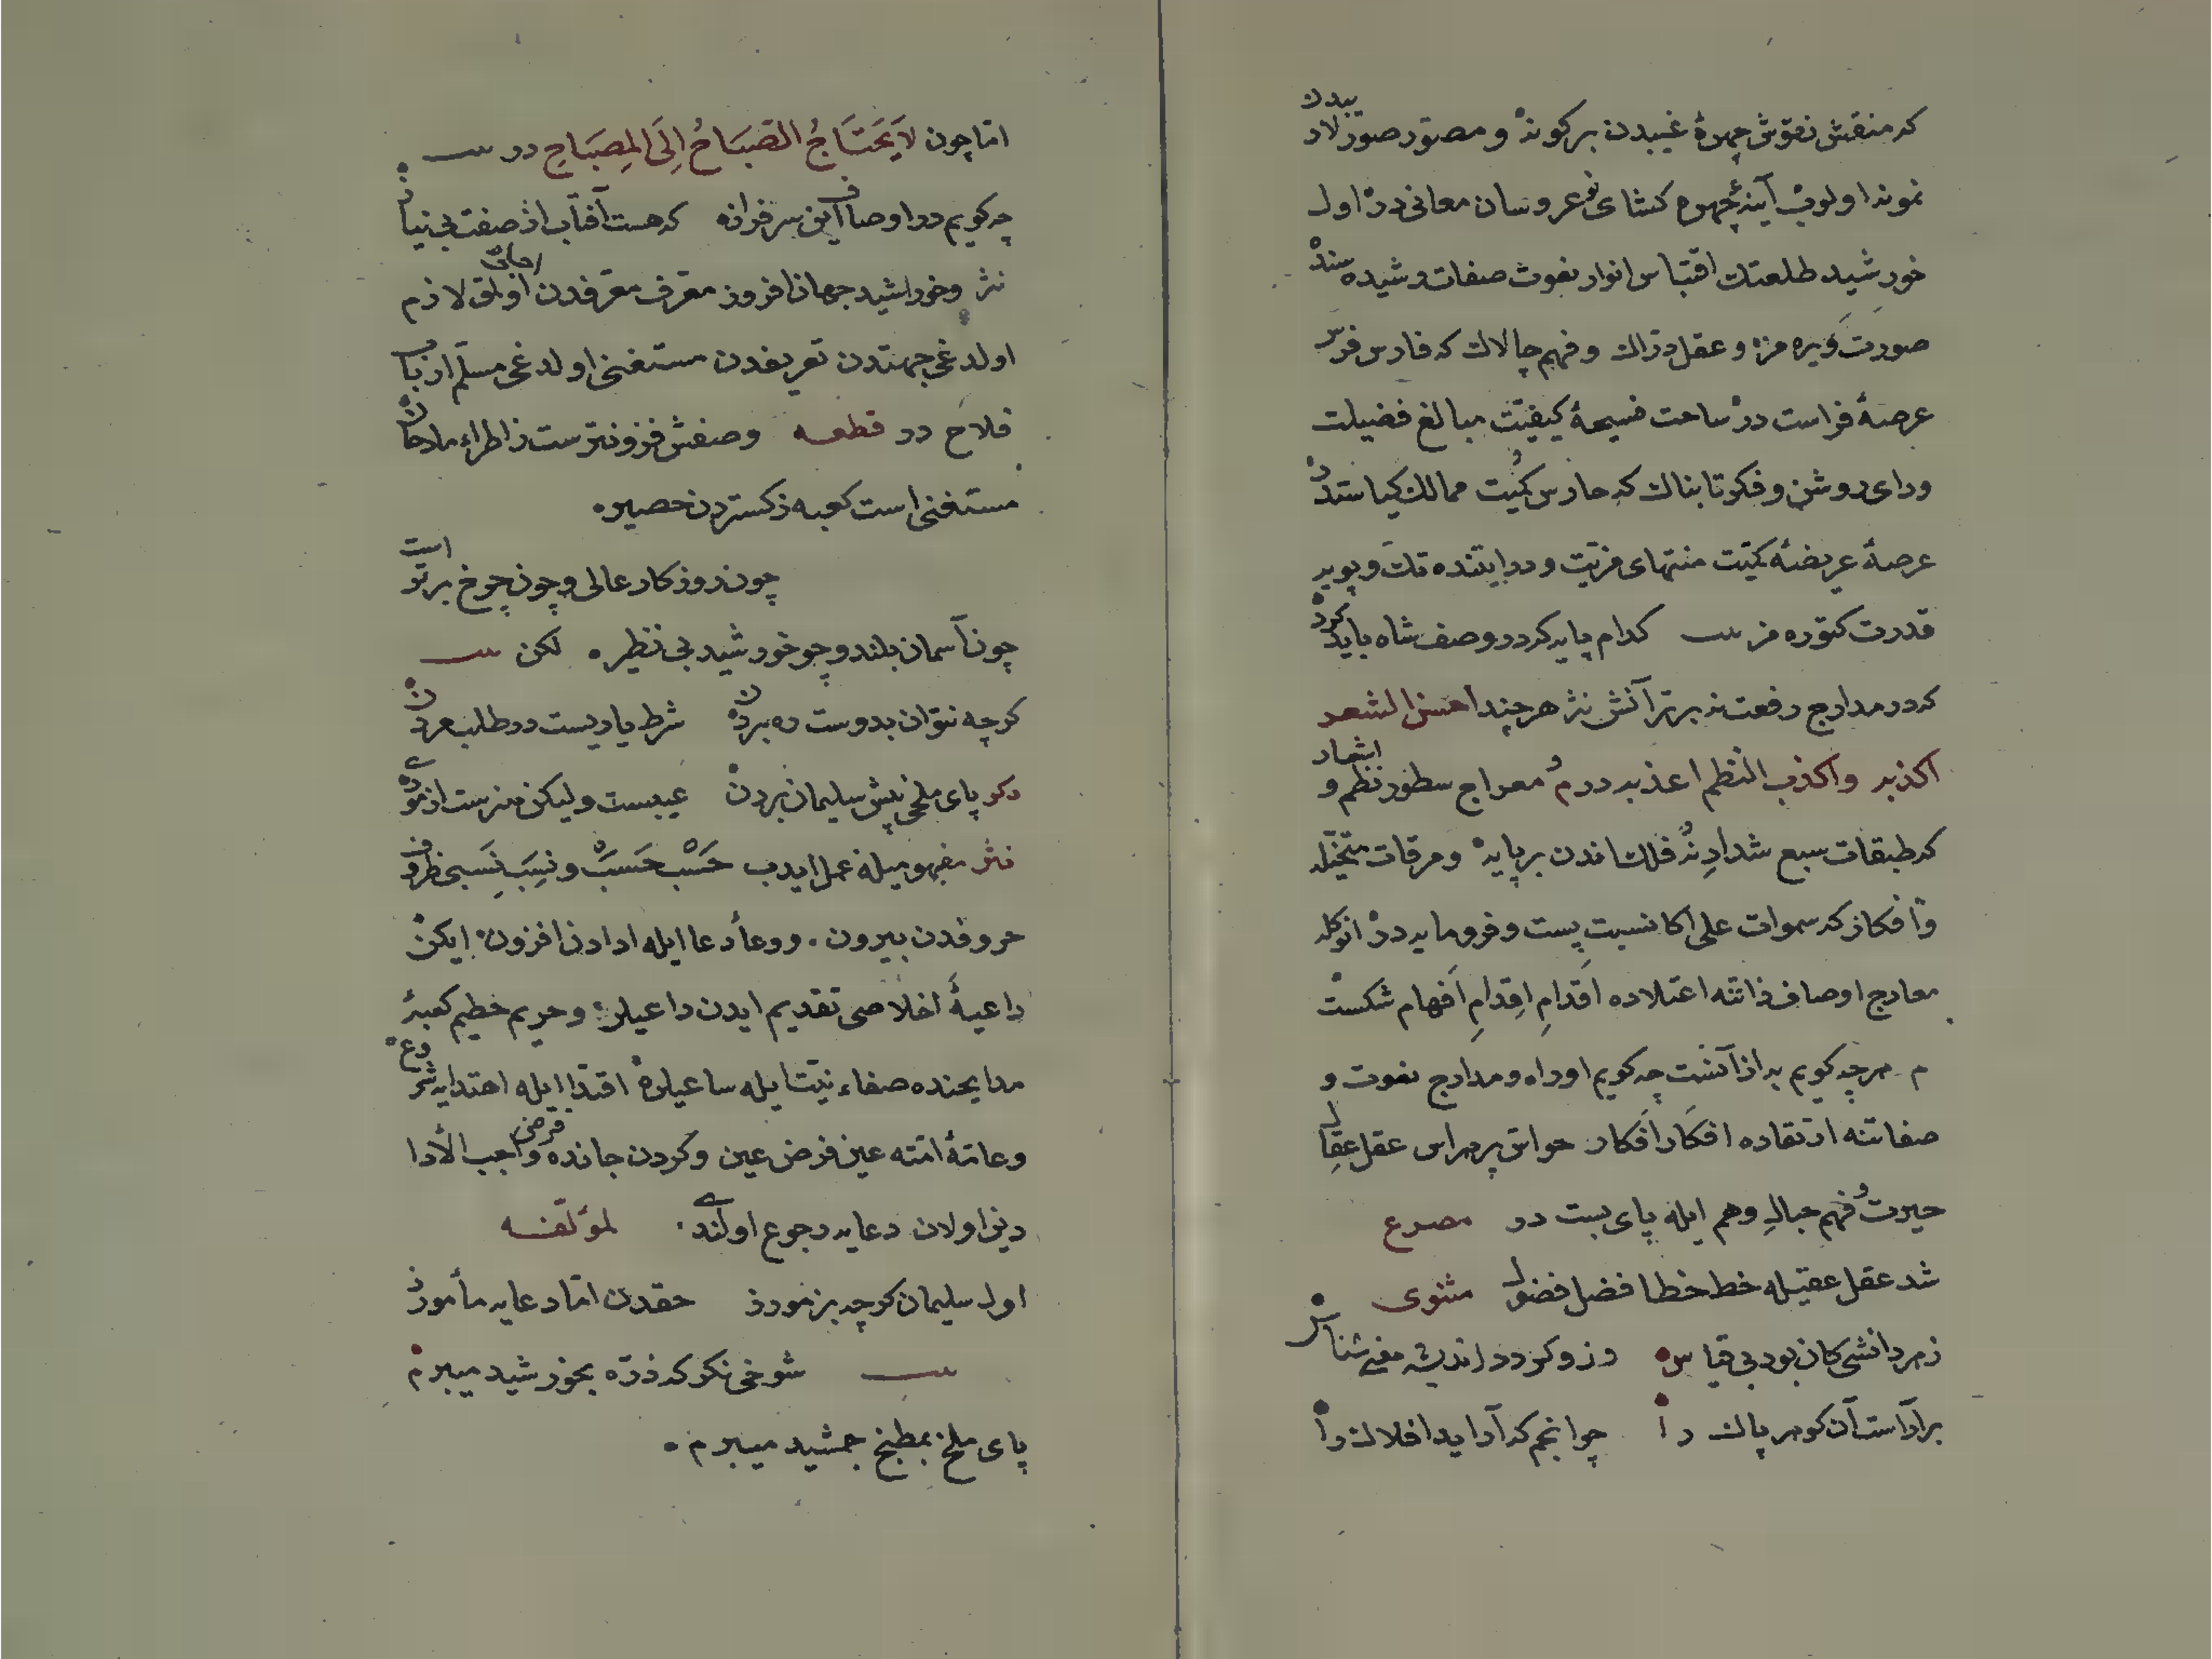 که منقش نقوش چهرهٔ غیبدن بر کونه و مصور صور لاریبدن
نمونه اولوب آینهٔ چهره کشای نو عروسان معانی در اول
خورشید طلعتك اقتباس انوار نعوت صفات رشیده سنده
صورت ویره مز و عقل دراك و فهم چالاك که فارس فرس
عرصهٔ فراست در ساحت فسیحهٔ کیفیت مبالغ فضیلت
و رای روشن و فکر تابناك که حارس کمیت ممالك کیاستدر
عرصهٔ عریضهٔ کمیت منتهای مزیت و درایتنده تك و پویه
قدرت کتوره مز کدام پایه که در وصف شاه باید کرد
که در مدارج رفعت نه برتر آنش نثر هر چند احسن الشعر
اکذبه و اکذب النظم اعذبه در م معراج سطور نظم و اشعار
که طبقات سبع شداد نه فلك اندن بر پایه و مرقات متخیله
و افکار که سموات علی اکا نسبت پست و فرومایه در انوکله
معارج اوصاف ذاتنه اعتلاده اقدام اقدام افهام شکست
م هر چه کویم به از آنست چه کویم او را ه و مدارج نعوت و
صفاتنه ارتقاده افکار افکار حواس پر هراس عقل عقال
حیرت و فهم حبال وهم ایله پای بست در مصرع
شد عقل عقیله خط خطا فضل فضول مثنوی
ز هر دانشی کان بود بی قیاس وزو کردد اندیشه معنی شناس
بر آراست آن کوهر پاك را چو انجم که آراید افلاك را
اما چون لَا یَحْتَاجُ الصَّبَاحُ اِلَی الْمِصْبَاحِ در
چه کویم در اوصاف این سرفراز که هست آفتاب از صفت بی نیاز
نثر و خورشید جهان افروز معرف معرفدن اولق لازم
اولدغی جهتدن تعریفدن مستغنی اولدغی مسلم ارباب
فلاح در قطعه وصفش فزونترست ز اطراء مادحان
مستغنی است کعبه ز کستردن حصیر
چون روزکار عالی و چون چرخ برترست
چون آسمان بلند و چو خورشید بی نظیر لکن
کرچه نتوان بدوست ره بردن شرط یاریست در طلب مردن
دکر پای ملخی پیش سلیمان بردن عیبست ولیکن هنرست از موری
نثر مفهومیله عمل ایدب حَسْب حَسَب و نِسَب نَسَبی ظروف
حروفدن بیرون و وعاء دعا ایله ادادن افزون ایکن
داعیهٔ اخلاصی تقدیم ایدن داعیلره و حریم حطیم کعبهٔ
مدایحنده صفاء نیت ایله ساعیلره اقتدا ایله اهتدا یه شروع
و عامهٔ امته عین فرض عین و کردن جانده قرض واجب الأدا
دین اولان دعایه رجوع اولندی لمؤلفه
اول سلیمان کرچه بز مورز حقدن اما دعایه مأمورز
شوخی نکر که ذره بخورشید میبرم
پای ملخ بمطبخ جمشید میبرم